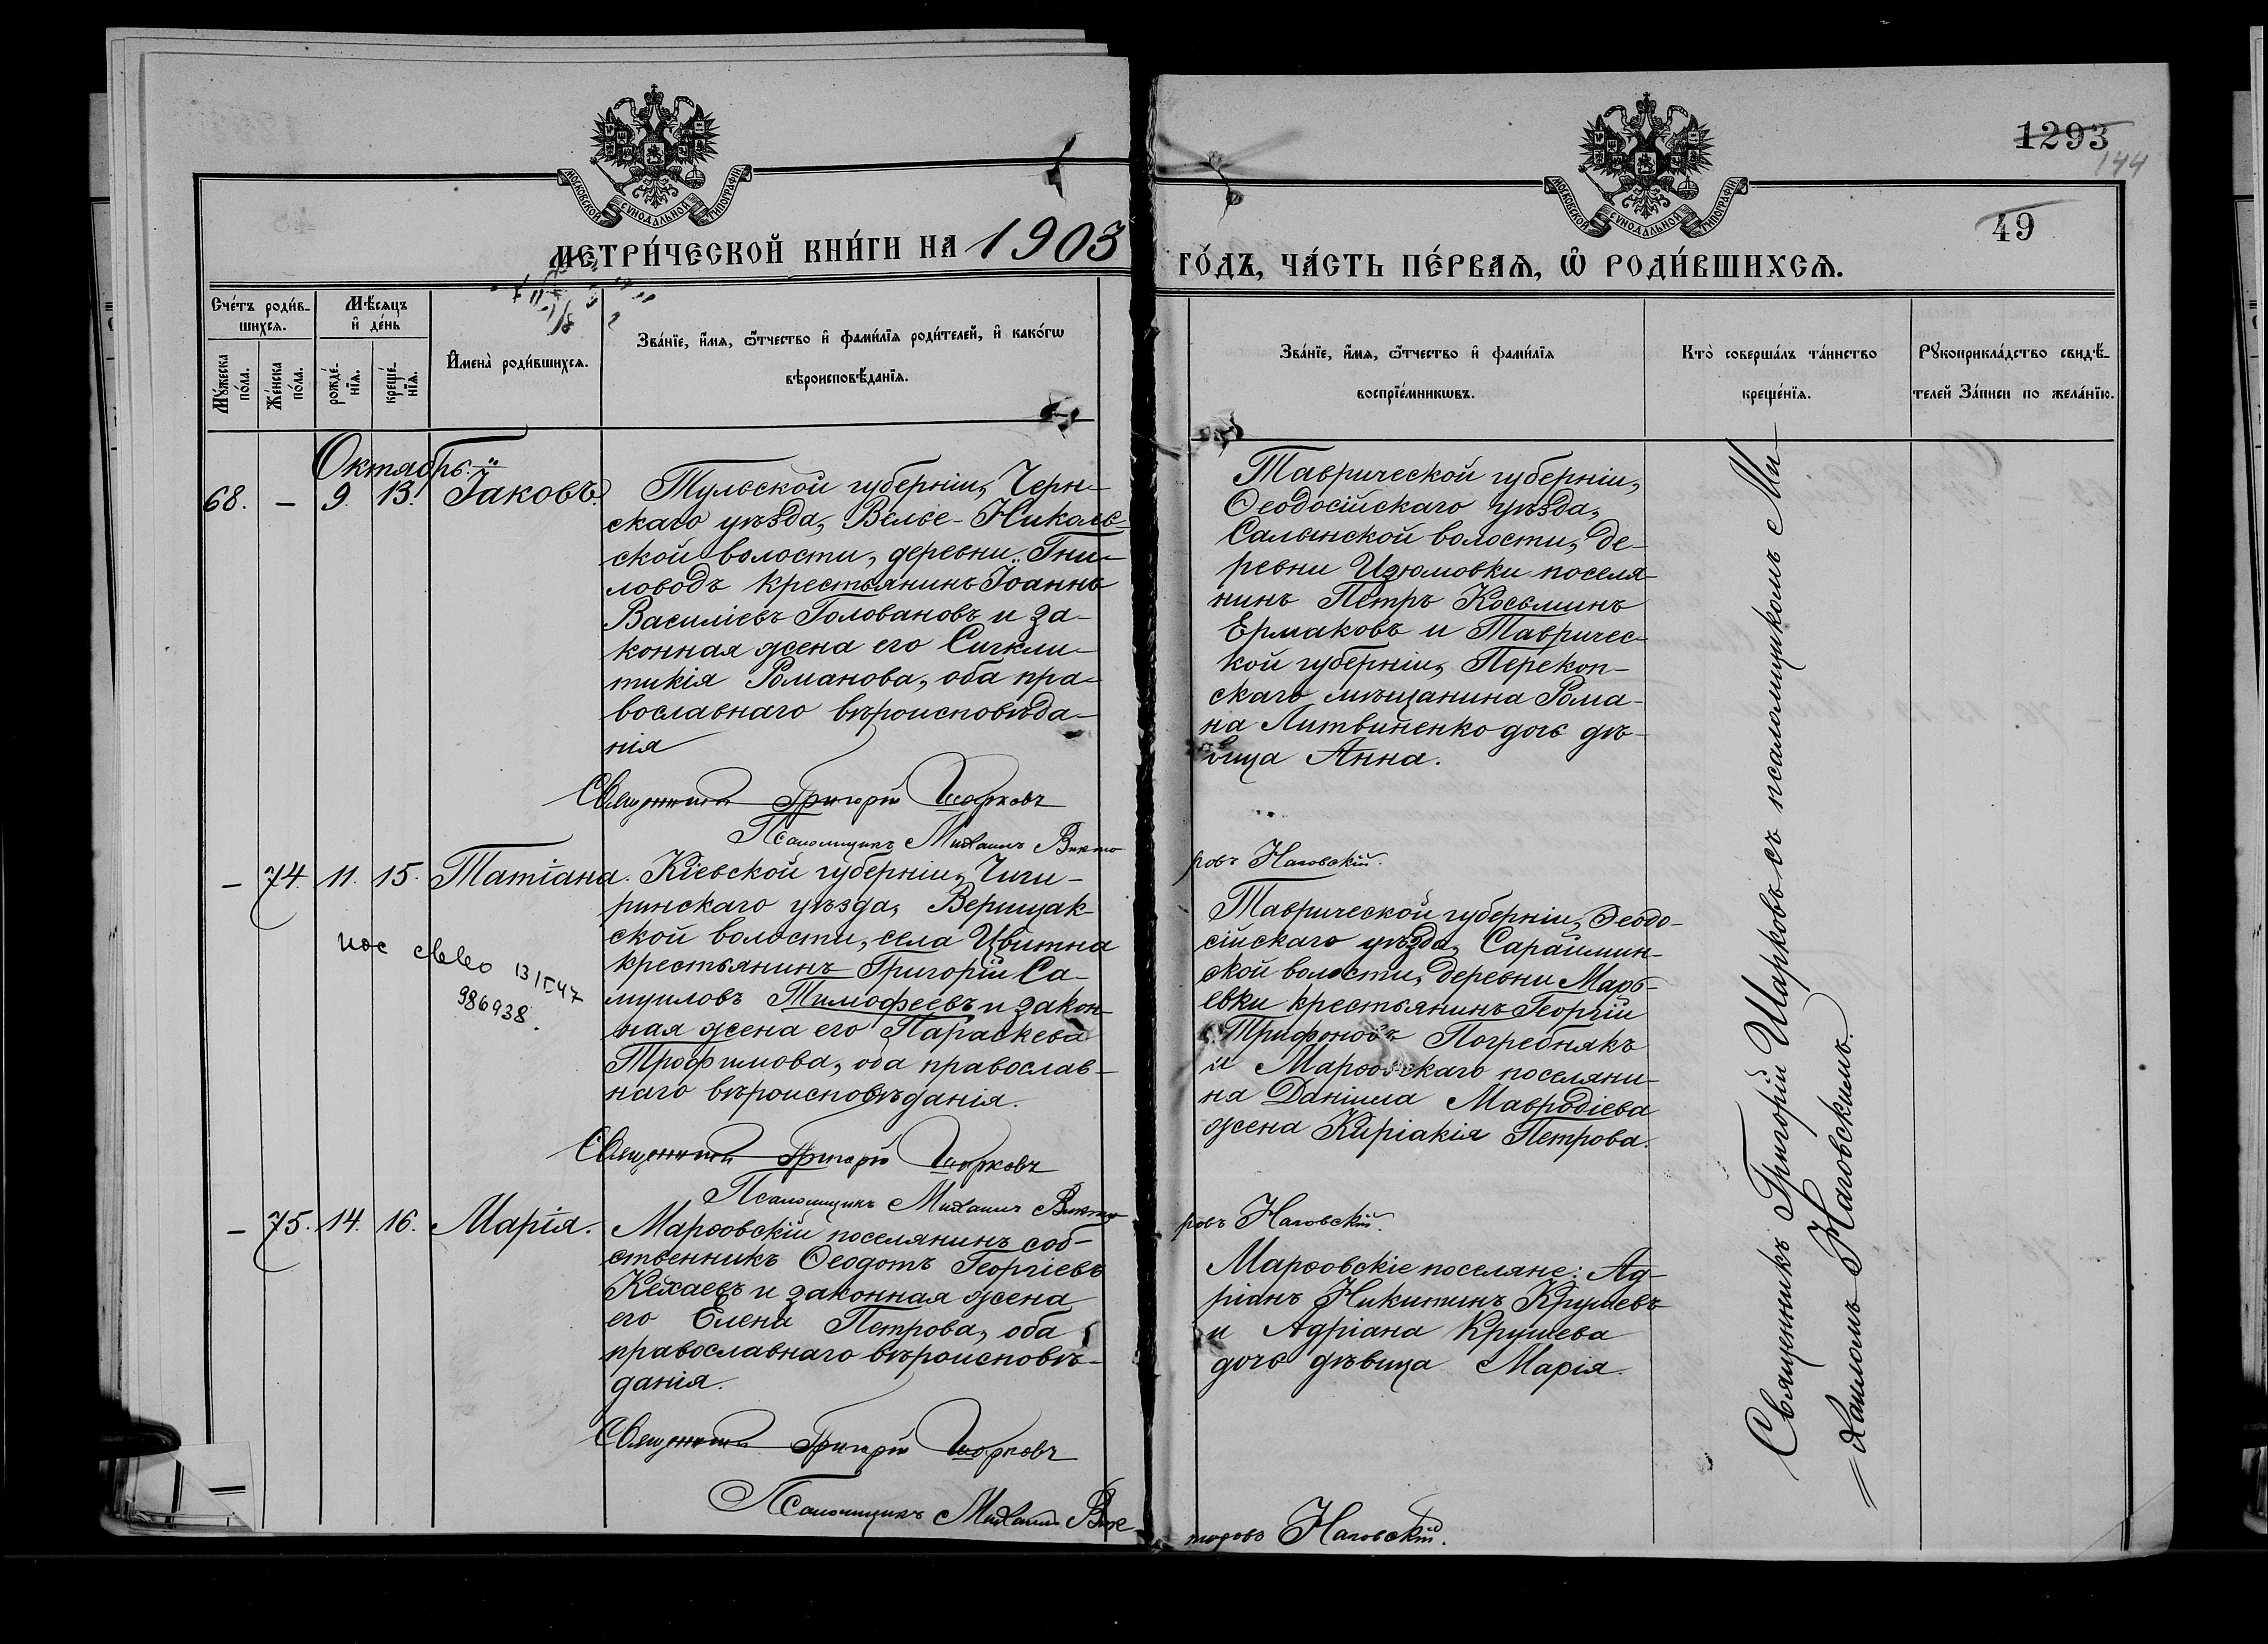 1293
144
49
МОСКОВСКОЙ СѴНОДАЛЬНОЙ ТИПОГРАФІИ
МОСКОВСКОЙ СѴНОДАЛЬНОЙ ТИПОГРАФІИ
МЕТРИ́ЧЕСКОЙ КНИ́ГИ НА 1903
ГО́ДЪ, ЧА́СТЬ ПЕ́РВАѦ, Ѡ҆ РОДИ́ВШИХСѦ.
Сче́тъ роди́в-
шихсѧ.
Мꙋ́жеска по́ла.
Же́нска по́ла.
Мѣ́сѧцъ
и҆ де́нь
рожде́-
нїѧ.
креще́-
нїѧ.
И҆мена̀ роди́вшихсѧ.
Зва́нїе, и҆́мѧ, ѻ҆́тчество и҆ фами́лїѧ роди́телей, и҆ како́гѡ
вѣроисповѣ́данїѧ.
Зва́нїе, и҆́мѧ, ѻ҆́тчество и҆ фами́лїѧ
воспрїе́мникѡвъ.
Кто̀ соверша́лъ та́инство
креще́нїѧ.
Рꙋкоприкла́дство свидѣ́-
телей за́писи по жела́нїю.
Октябрь.
68. – 9. 13. Іаковъ.
Тульской губерніи, Черн-
скаго уѣзда, Велье-Николь-
ской волости, деревни Гни-
ловодъ крестьянинъ Іоаннъ
Василіевъ Головановъ и за-
конная жена его Сигкли-
тикія Романова, оба пра-
вославнаго вѣроисповѣда-
нія
Священникъ Григорій Шарковъ
Псаломщикъ Михаилъ Викто
ровъ Наговскій.
Таврической губерніи,
Ѳеодосійскаго уѣзда,
Салынской волости, де-
ревни Изюмовки поселя-
нинъ Петръ Косьминъ
Ермаковъ и Тавричес-
кой губерніи, Перекоп-
скаго мѣщанина Рома-
на Литвиненко дочь дѣ-
вица Анна.
– 74. 11. 15. Татіана.
13/I 47
986938.
Кіевской губерніи, Чиги-
ринскаго уѣзда, Вершцак-
ской волости, села Цвитна
крестьянинъ Григорій Са-
муиловъ Тимофеевъ и закон-
ная жена его Параскева
Трофимова, оба православ-
наго вѣроисповѣданія.
Священникъ Григорій Шарковъ
Псаломщикъ Михаилъ Викто
ровъ Наговскій.
Таврической губерніи, Ѳеодо-
сійскаго уѣзда, Сараймин-
ской волости, деревни Марь-
евки крестьянинъ Георгій
Трифоновъ Погребнякъ
и Марѳовскаго поселяни-
на Даніила Мавродіева
жена Киріакія Петрова.
– 75. 14. 16. Марія.
Марѳовскій поселянинъ соб-
ственникъ Ѳеодотъ Георгіевъ
Кехаевъ и законная жена
его Елена Петрова, оба
православнаго вѣроисповѣ-
данія.
Священникъ Григорій Шарковъ
Псаломщикъ Михаилъ Вик-
торовъ Наговскій.
Марѳовскіе поселяне: Ад-
ріанъ Никитинъ Крушевъ
и Адріана Крушева
дочь дѣвица Марія.
Священникъ Григорій Шарковъ съ псаломщикомъ Ми-
хаиломъ Наговскимъ.